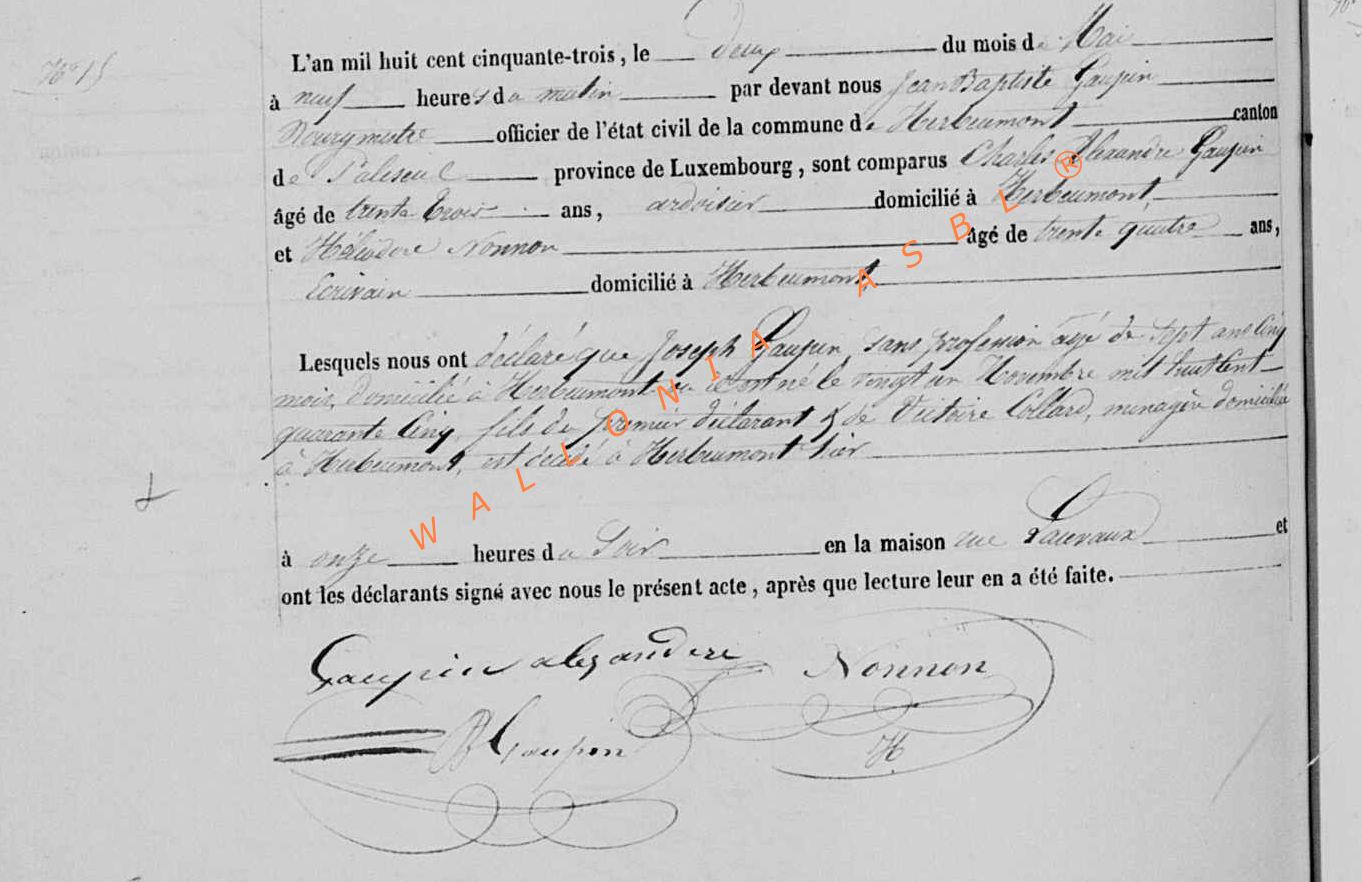 N° 15
L'an mil huit cent cinquante-trois, le deux du mois de Mai
à neuf heures du matin par devant nous Jean Baptiste Gaupin
Bourgmestre officier de l'état civil de la commune de Herbeumont canton
de Paliseul province de Luxembourg, sont comparus Charles Alexandre Gaupin
âgé de trente trois ans, ardoisier domicilié à Herbeumont,
et Héliodore Nonnon âgé de trente quatre ans,
Ecrivain domicilié à Herbeumont,
Lesquels nous ont déclaré que Joseph Gaupin, sans profession âgé de Sept ans Cinq
mois, domicilié à Herbeumont où il est né le vingt un Novembre mil huit Cent
quarante Cinq, fils du premier déclarant & de Victoire Collard, menagère domiciliée
à Herbeumont, est décédé à Herbeumont hier
à onze heures du Soir en la maison rue Lauvaux et
ont les déclarants signé avec nous le présent acte, après que lecture leur en a été faite.
Gaupin alexandre Nonnon
JB Gaupin H
WALLONIA ASBL ®